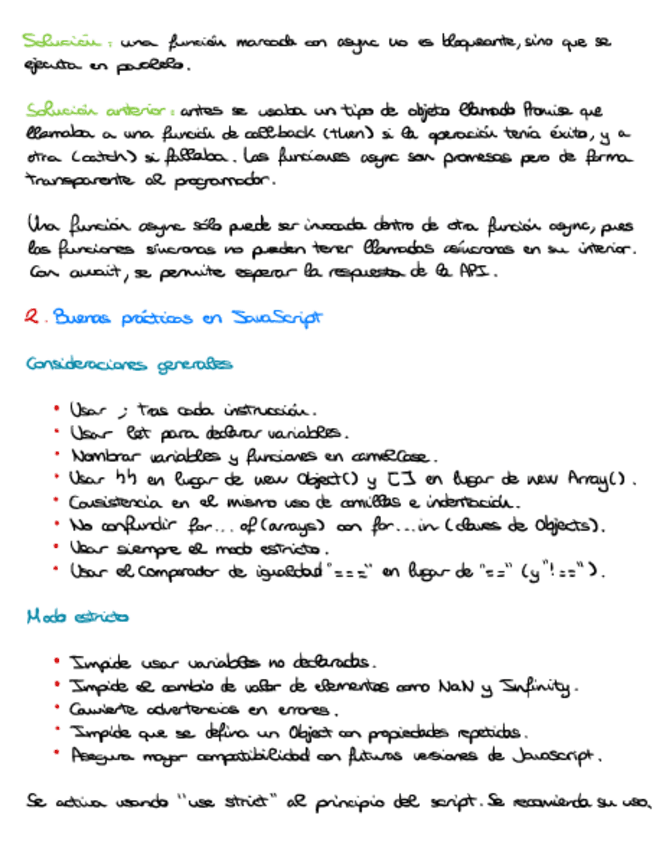 Solución: una función marcada con async no es bloqueante, sino que se
ejecuta en paralelo.
Solución anterior: antes se usaba un tipo de objeto llamado Promise que
llamaba a una función de callback (then) si la operación tenía éxito, y a
otra (catch) si fallaba. Las funciones async son promesas pero de forma
transparente al programador.
Una función async sólo puede ser invocada dentro de otra función async, pues
las funciones síncronas no pueden tener llamadas asíncronas en su interior.
Con await, se permite esperar la respuesta de la API.
2. Buenas prácticas en JavaScript
Consideraciones generales
• Usar ; tras cada instrucción.
• Usar let para declarar variables.
• Nombrar variables y funciones en camelCase.
• Usar {} en lugar de new Object() y [] en lugar de new Array().
• Consistencia en el mismo uso de comillas e indentación.
• No confundir for... of (arrays) con for...in (claves de Objects).
• Usar siempre el modo estricto.
• Usar el comparador de igualdad "===" en lugar de "==" (y "!==").
Modo estricto
• Impide usar variables no declaradas.
• Impide el cambio de valor de elementos como NaN y Infinity.
• Convierte advertencias en errores.
• Impide que se defina un Object con propiedades repetidas.
• Asegura mayor compatibilidad con futuras versiones de Javascript.
Se activa usando "use strict" al principio del script. Se recomienda su uso.